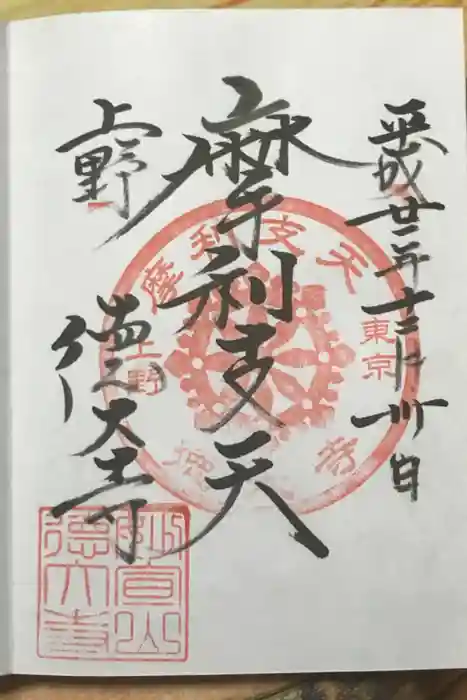 平成廿二年十二月卅日
摩利支天
上野
徳大寺
摩利支天
東京
上野
妙宣山
徳大寺